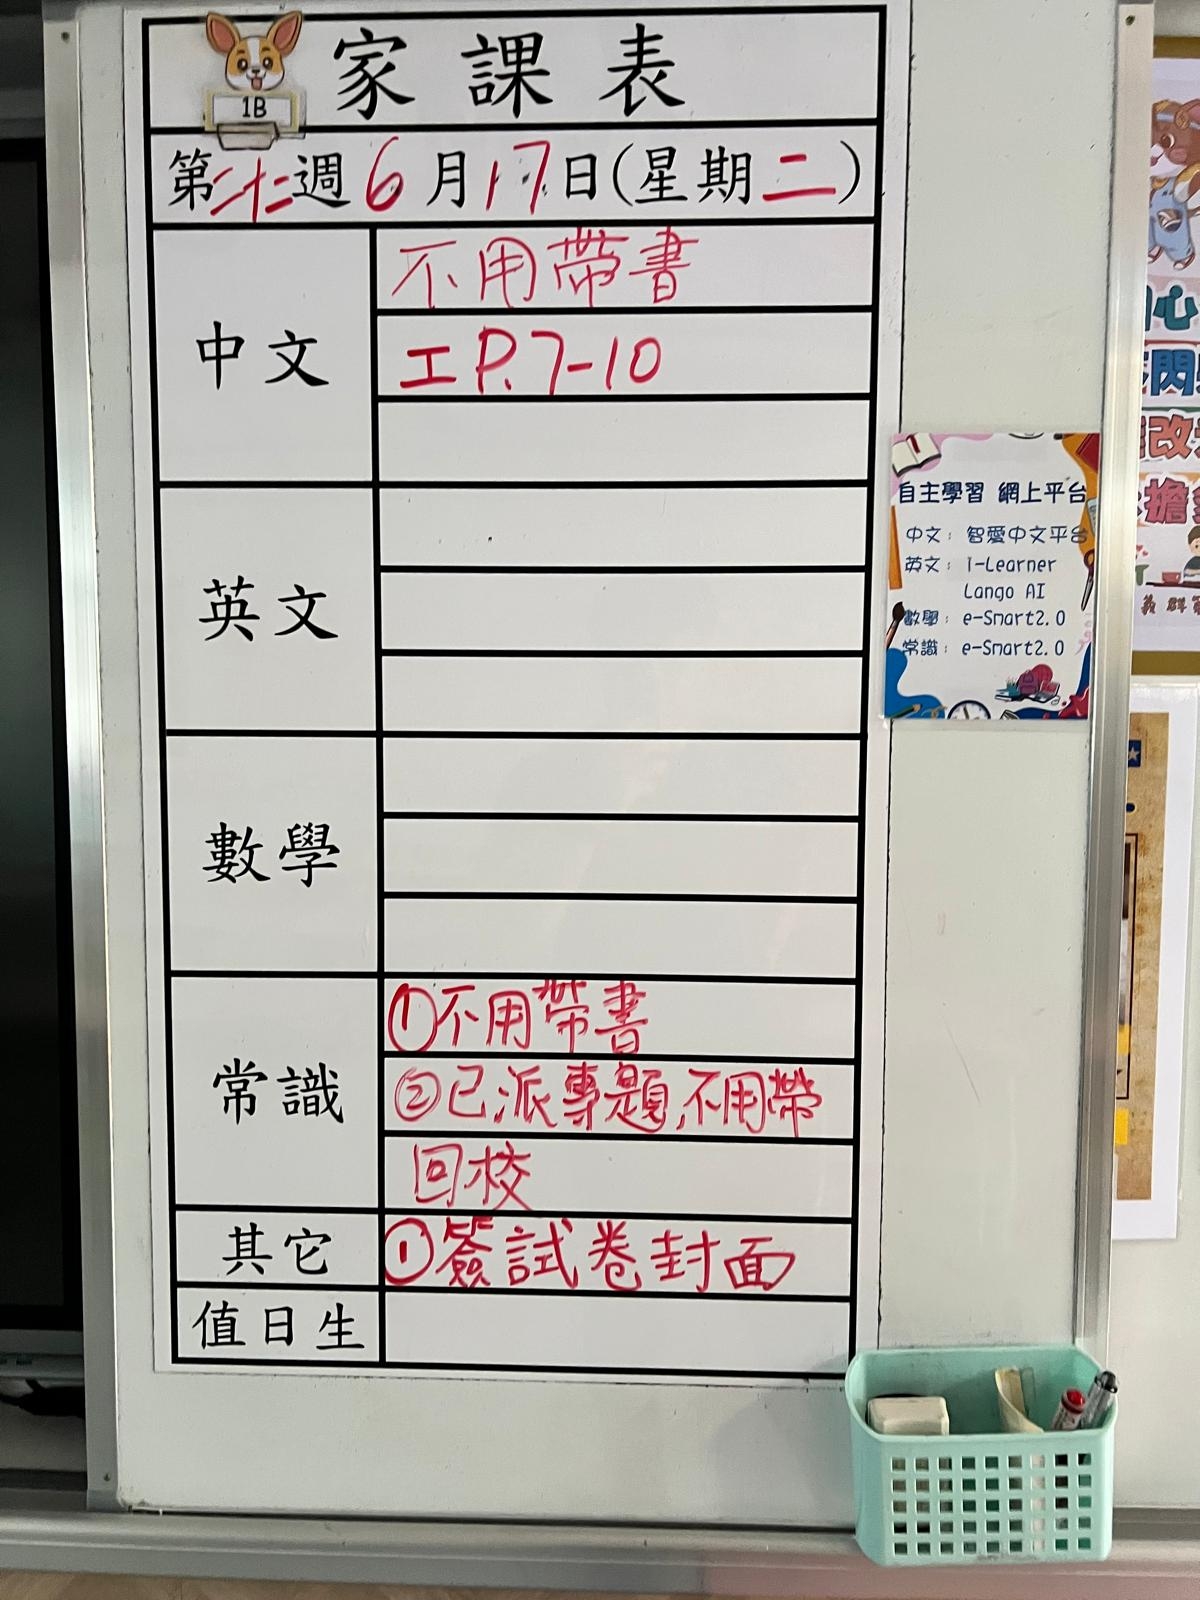 家課表
1B
第二十二週6月17日(星期二)
中文
不用帶書
工P.7-10
英文
數學
常識
①不用帶書
②已派專題,不用帶
回校
其它
①簽試卷封面
值日生
自主學習 網上平台
中文: 智愛中文平台
英文: i-Learner
Lango AI
數學: e-Smart2.0
常識: e-Smart2.0
心
閃
改
擔